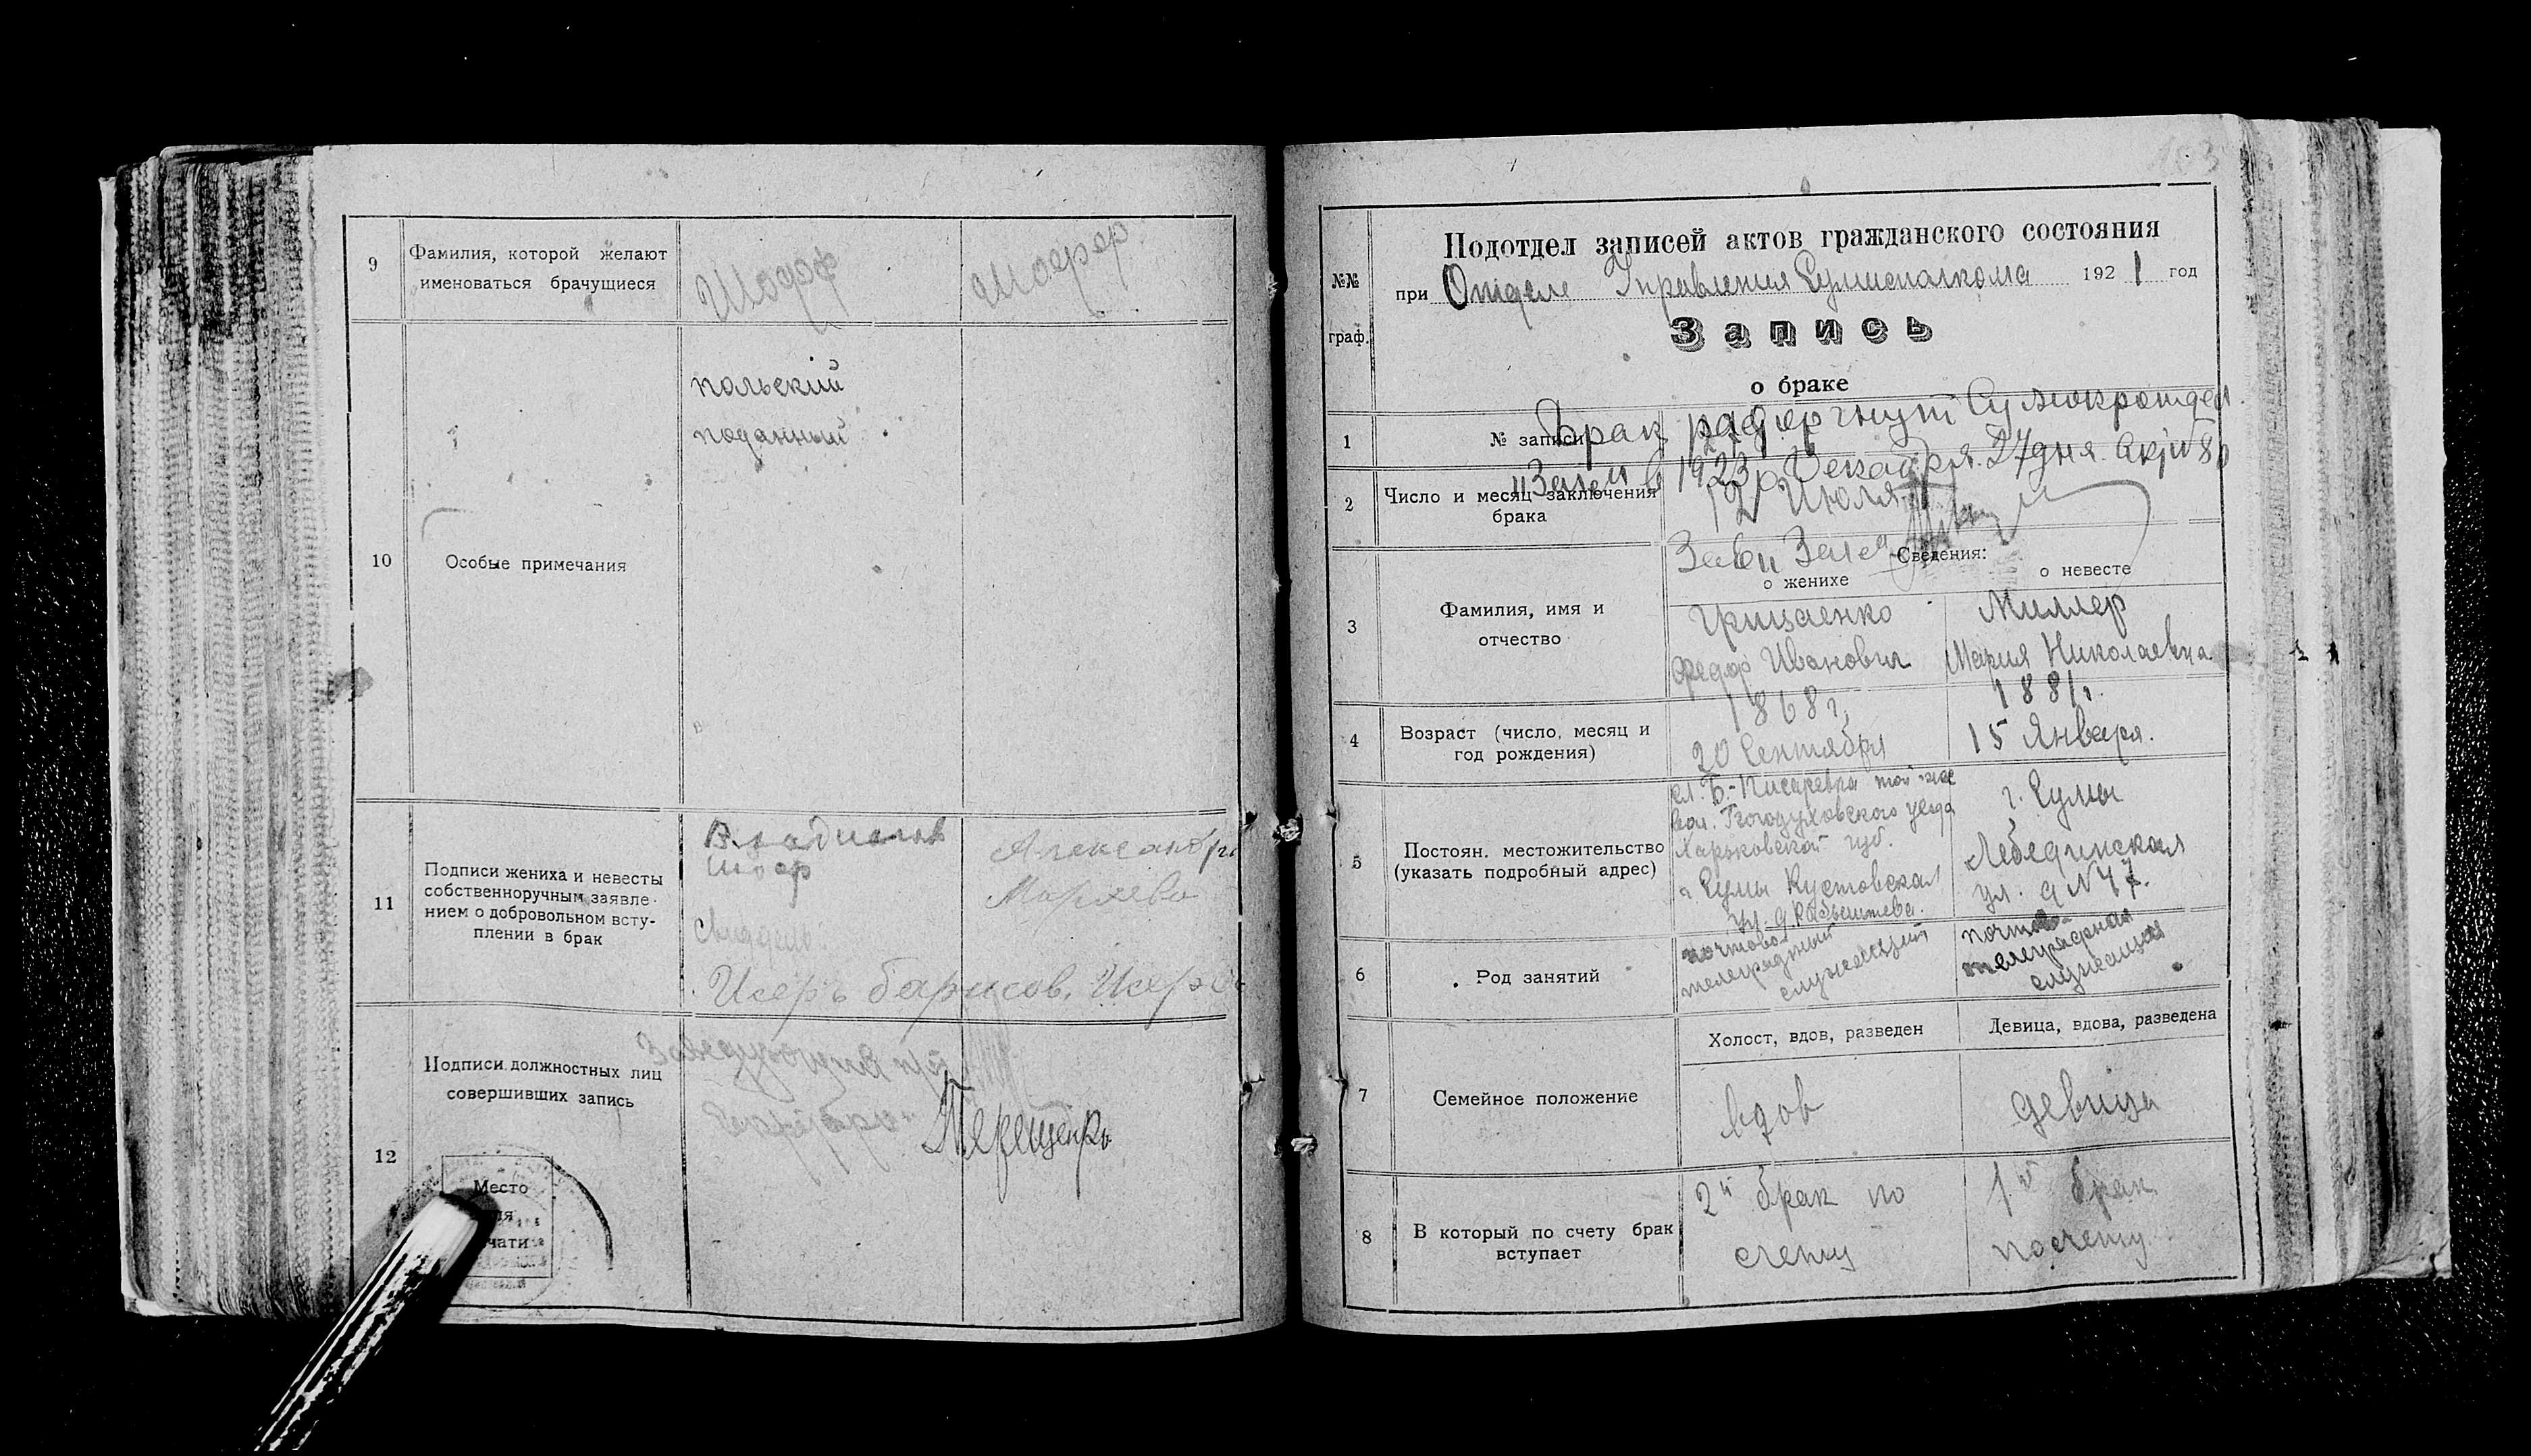 9
Фамилия, которой желают
именоваться брачущиеся
10
Особые примечания
польский
поданный
11
Подписи жениха и невесты
собственноручным заявле-
нием о добровольном всту-
плении в брак
Александра
Исеръ
12
Подписи должностных лиц
совершивших запись
Заведующий п/о
Секретарь
Терещенко
Место
чати
103
№№
граф.
Подотдел записей актов гражданского состояния
при Отделе Управления Сумисполкома 1921 год
Запись
о браке
Брак расторгнут
в 1923 г. Декабря 27 дня
1
№ записи
2
Число и месяц заключения
брака
12 Июля
Сведения:
о женихе
о невесте
3
Фамилия, имя и
отчество
Грищаенко
Федор Иванович
Миллер
Мария Николаевна
4
Возраст (число, месяц и
год рождения)
1868 г.
20 Сентября
1881 г.
15 Января.
5
Постоян. местожительство
(указать подробный адрес)
сл. Б.-Писаревка той же
вол. Богодуховского уезда
Харьковской губ.
г. Сумы Кустовская
ул. д.
г. Сумы
Лебединская
ул. д №
6
Род занятий
почтово-
телеграфный
служащий
почтово-
телеграфная
служащая
7
Семейное положение
Холост, вдов, разведен
Девица, вдова, разведена
вдов
девица
8
В который по счету брак
вступает
2й брак по
счету
1й брак
по счету